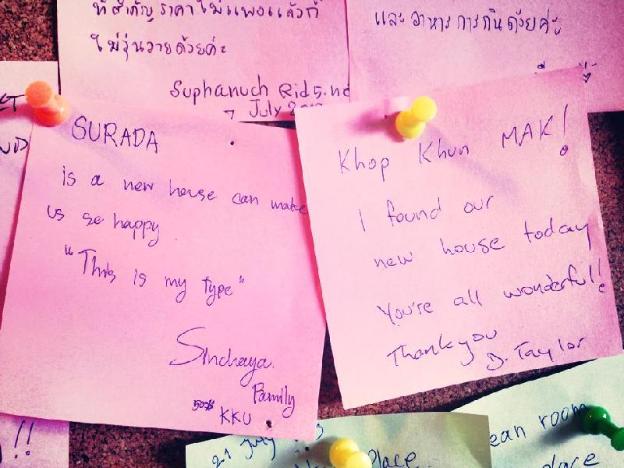 ที่สำคัญ ราคาไม่แพงแล้วก็
ไม่วุ่นวายด้วยค่ะ
Suphanuch
7 July
และ อาหาร การกินด้วยค่ะ
SURADA
is a new house can make
us so happy
"This is my type"
Sinchaya.
Family
KKU
Khop Khun MAK!
I found our
new house today
You're all wonderful!
Thank you
D. Taylor
!!
21 July
Place
ean room
place